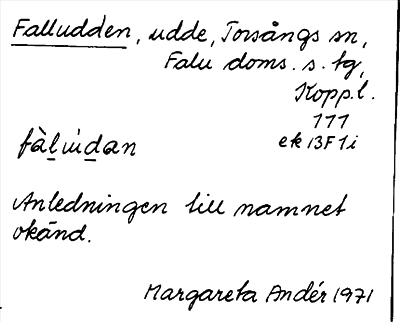 Falludden, udde, Torsångs sn,
Falu doms. s. tg,
Kopp.l.
111
fàl̲ud̲an ek 13F1i
Anledningen till namnet
okänd.
Margareta Andér 1971